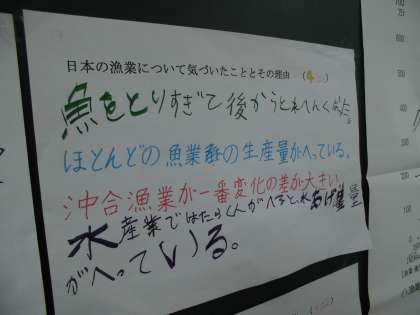 日本の漁業について気づいたこととその理由 (4
魚をとりすぎて後からとれへんくなった。
ほとんどの漁業の生産量がへっている。
沖合漁業が一番変化の差が大きい。
水産業ではたらく人がへると、水あげ量
がへっている。